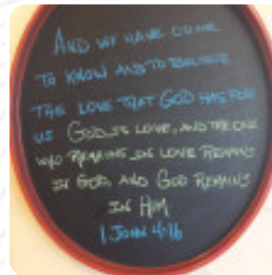 AND WE HAVE COME
TO KNOW AND TO BELIEVE
THE LOVE THAT GOD HAS FOR
US GOD IS LOVE, AND THE ONE
WHO REMAINS IN LOVE REMAINS
IN GOD, AND GOD REMAINS
IN HIM
1 JOHN 4:16